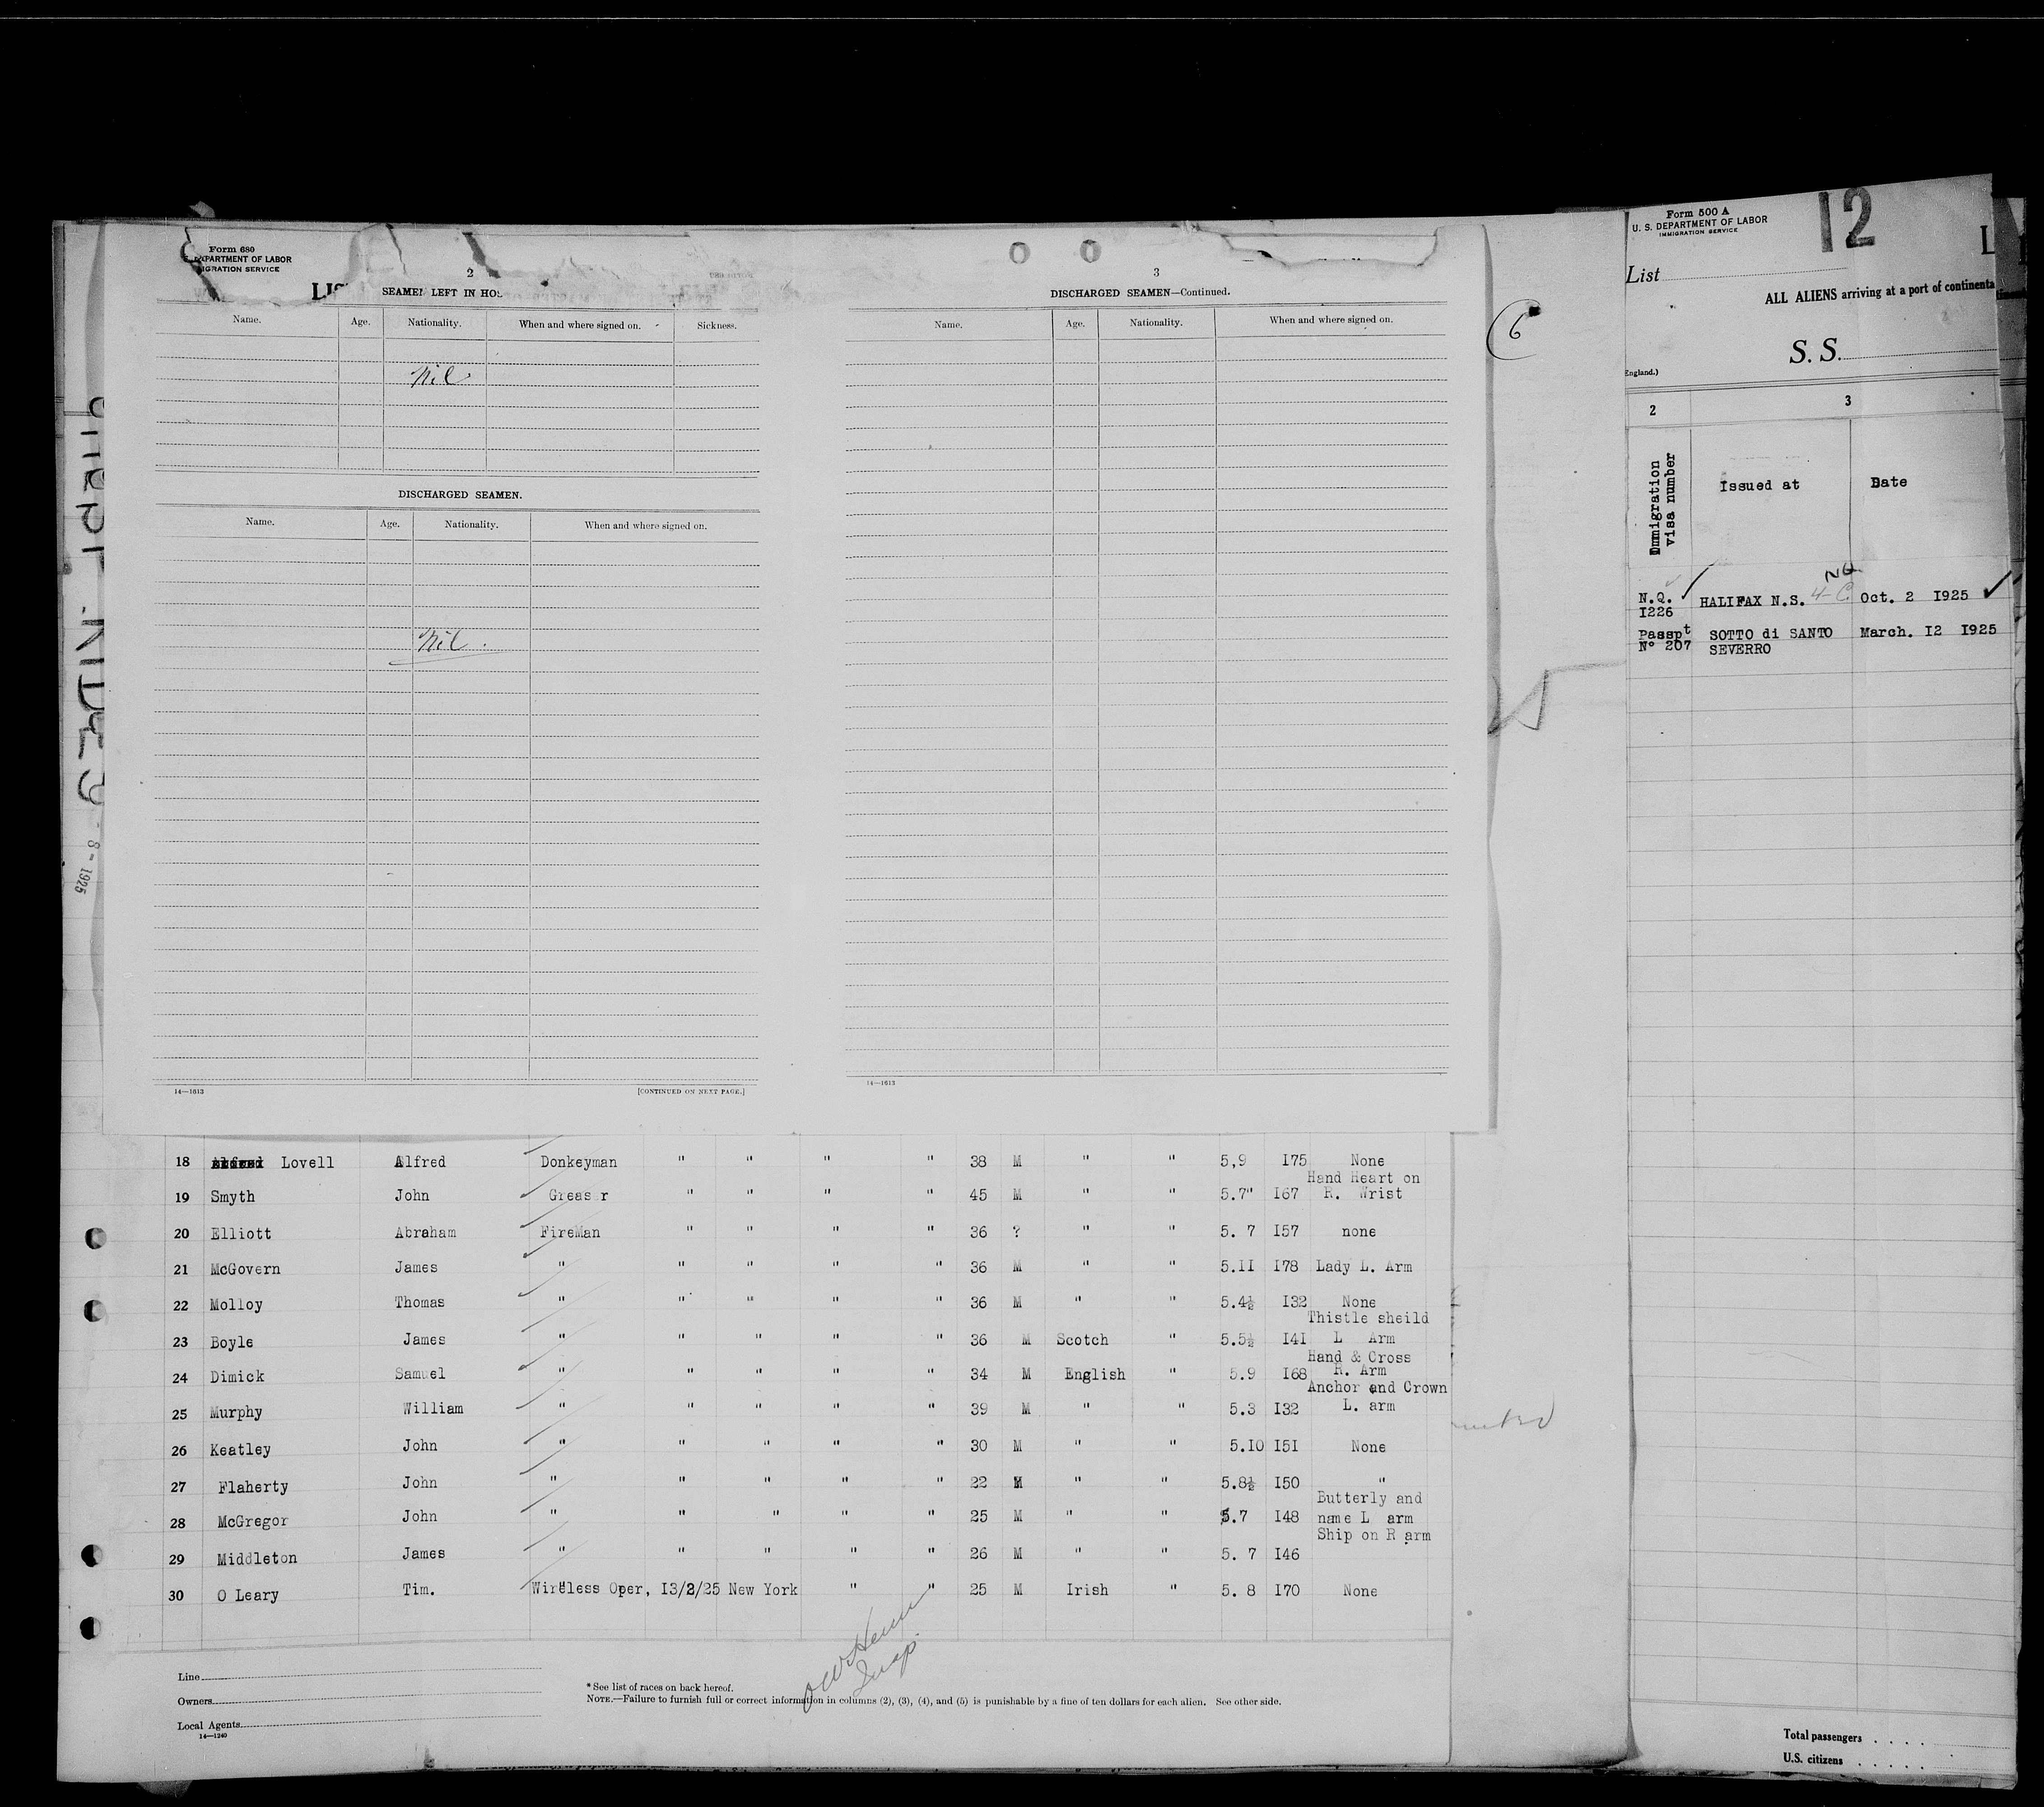 Form 680
DEPARTMENT OF LABOR
MIGRATION SERVICE
2
LIS
SEAMEN LEFT IN HOS
Name. Age. Nationality. When and where signed on. Sickness.
Nil
DISCHARGED SEAMEN.
Name. Age. Nationality. When and where signed on.
Nil.
14—1613 [CONTINUED ON NEXT PAGE.]
3
DISCHARGED SEAMEN—Continued.
Name. Age. Nationality. When and where signed on.
14—1613
6
8-1925
18 Lovell Alfred Donkeyman " " " " 38 M " " 5,9 I75 None
19 Smyth John Greaser " " " " 45 M " " 5.7" I67 Hand Heart on
R. Wrist
20 Elliott Abraham FireMan " " " " 36 ? " " 5. 7 I57 none
21 McGovern James " " " " " 36 M " " 5.II I78 Lady L. Arm
22 Molloy Thomas " " " " " 36 M " " 5.4½ I32 None
23 Boyle James " " " " " 36 M Scotch " 5.5½ I4I Thistle sheild
L Arm
24 Dimick Samuel " " " " " 34 M English " 5.9 I68 Hand & Cross
R. Arm
25 Murphy William " " " " " 39 M " " 5.3 I32 Anchor and Crown
L. arm
26 Keatley John " " " " " 30 M " " 5.I0 I5I None
27 Flaherty John " " " " " 22 M " " 5.8½ I50 "
28 McGregor John " " " " " 25 M " " 5.7 I48 Butterly and
name L arm
Ship on R arm
29 Middleton James " " " " " 26 M " " 5. 7 I46
30 O Leary Tim. Wireless Oper, I3/2/25 New York " " 25 M Irish " 5. 8 I70 None
Line
Owners
Local Agents
14—1240
* See list of races on back hereof.
NOTE.—Failure to furnish full or correct information in columns (2), (3), (4), and (5) is punishable by a fine of ten dollars for each alien. See other side.
Insp.
Form 500 A
U. S. DEPARTMENT OF LABOR
IMMIGRATION SERVICE
12
L
List
ALL ALIENS arriving at a port of continenta
S. S.
England.)
2 3
Immigration
visa number
Issued at Date
N.Q.
I226
HALIFAX N.S. 4-C Oct. 2 I925
Passpt
Nº 207
SOTTO di SANTO
SEVERRO
March. I2 I925
Total passengers . . . .
U.S. citizens . . . . .